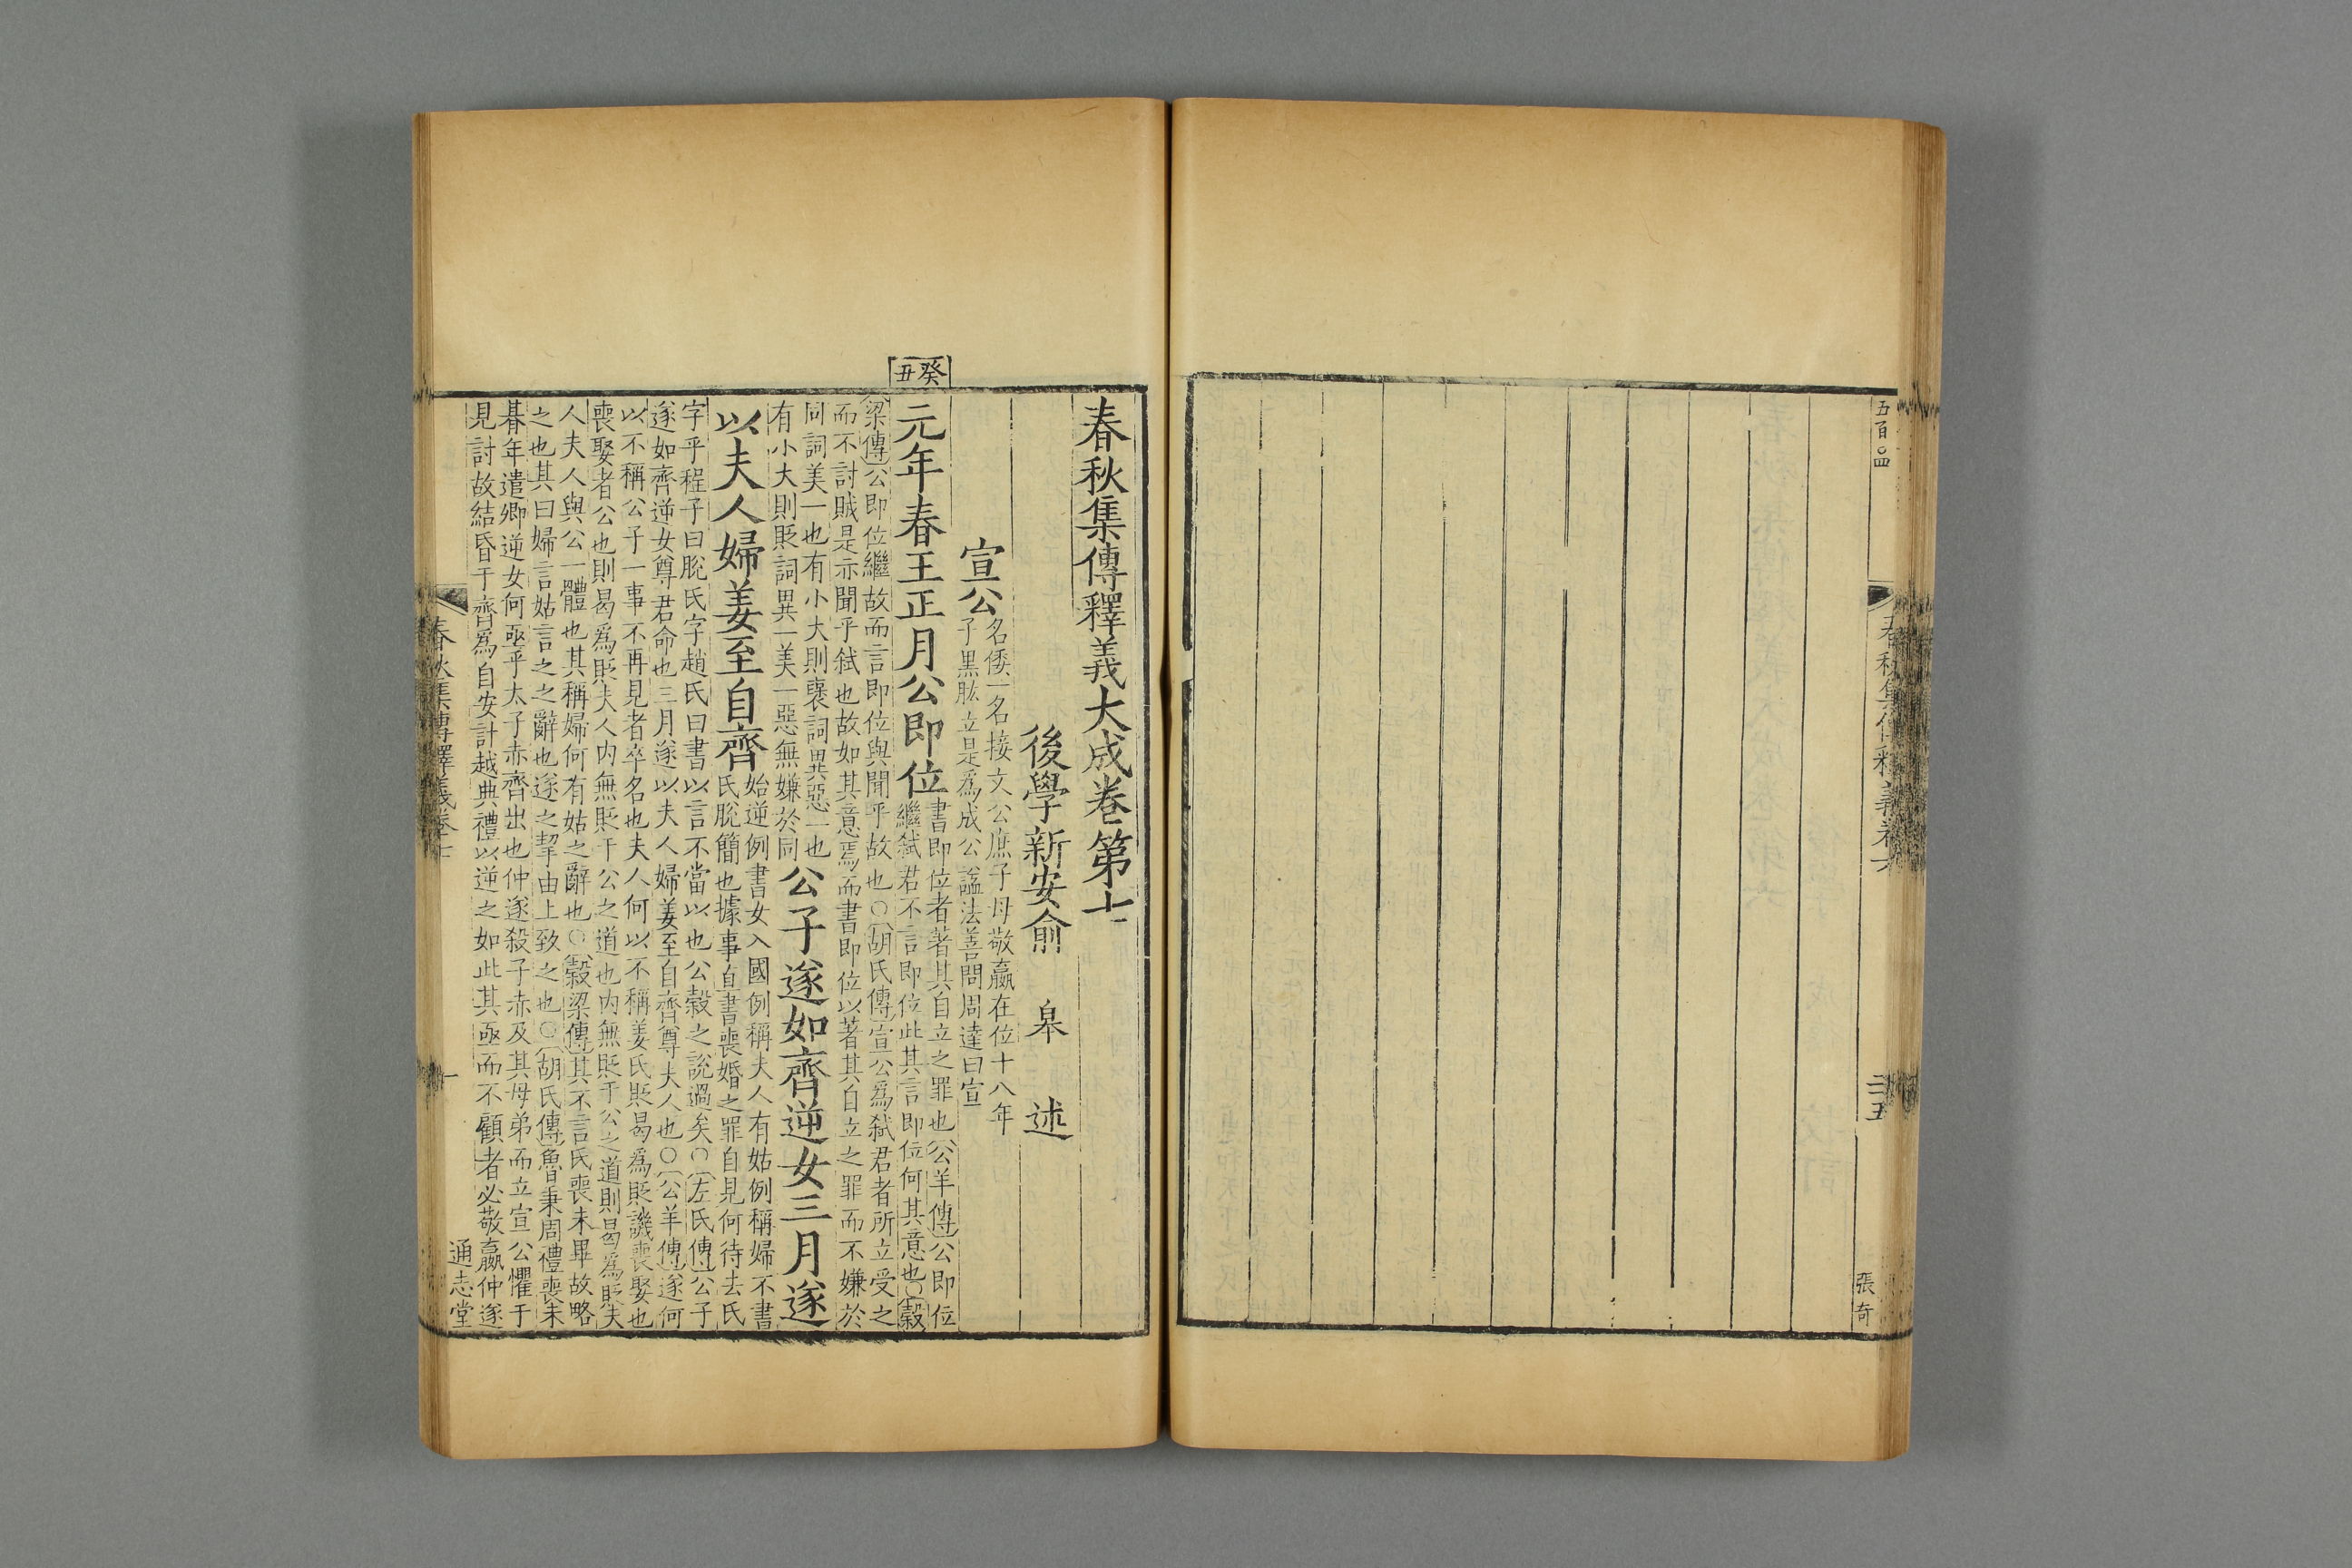 五百〇四
春秋集傳釋義卷六
三五
張奇
春秋集傳釋義大成卷第七
後學新安俞 皋 述
宣公
名倭一名接文公庶子母敬嬴在位十八年
子黑肱立是爲成公諡法善問周達曰宣
癸丑
元年春王正月公即位
書即位者著其自立之罪也公羊傳公即位
繼弑君不言即位此其言即位何其意也○穀
梁傳公即位繼故而言即位與聞乎故也○胡氏傳宣公爲弑君者所立受之
而不討賊是示聞乎弑也故如其意焉而書即位以著其自立之罪而不嫌於
同詞美一也有小大則襃詞異惡一也
有小大則貶詞異一美一惡無嫌於同
公子遂如齊逆女三月遂
以夫人婦姜至自齊
始逆例書女入國例稱夫人有姑例稱婦不書
氏脫簡也據事直書喪婚之罪自見何待去氏
字乎程子曰脫氏字趙氏曰書以言不當以也公穀之說過矣○左氏傳公子
遂如齊逆女尊君命也三月遂以夫人婦姜至自齊尊夫人也○公羊傳遂何
以不稱公子一事不再見者卒名也夫人何以不稱姜氏貶曷爲貶譏喪娶也
喪娶者公也則曷爲貶夫人內無貶于公之道也內無貶于公之道則曷爲貶夫
人夫人與公一體也其稱婦何有姑之辭也○穀梁傳其不言氏喪未畢故略
之也其曰婦言姑言之之辭也遂之挈由上致之也○胡氏傳魯秉周禮喪未
朞年遣卿逆女何亟乎太子赤齊出也仲遂殺子赤及其母弟而立宣公懼于
見討故結昏于齊爲自安計越典禮以逆之如此其亟而不顧者必敬嬴仲遂
春秋集傳釋義卷七
一
通志堂